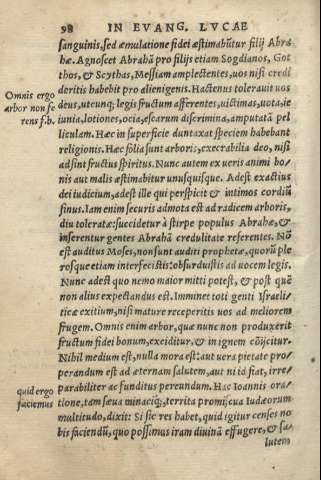 98 IN EVANG. LVCAE
sanguinis, sed æmulatione fidei æstimabūtur filij Abra
hæ. Agnoscet Abrahā pro filijs etiam Sogdianos, Got
thos, & Scythas, Messiam amplectentes, vos nisi credi
deritis habebit pro alienigenis. Hactenus tolerauit vos
Omnis ergo
deus, utcunq; legis fructum afferentes, uictimas, uota, ie
arbor non fe
iunia, lotiones, ocia, escarum discrimina, amputatā pel
rens f.b.
liculam. Hæc in superficie duntaxat speciem habebant
religionis. Hæc folia sunt arboris, execrabilia deo, nisi
adsint fructus spiritus. Nunc autem ex ueris animi bo
nis aut malis æstimabitur unusquisque. Adest exactius
dei iudicium, adest ille qui perspicit & intimos cordiū
sinus. Iam enim securis admota est ad radicem arboris,
diu toleratæ: succidetur à stirpe populus Abrahæ, &
inserentur gentes Abrahā credulitate referentes. Nō
est auditus Moses, non sunt auditi prophetæ, quorū ple
rosque etiam interfecistis: obsurduistis ad uocem legis.
Nunc adest quo nemo maior mitti potest, & post quē
non alius expectandus est. Imminet toti genti Israeli
ticæ exitium, nisi mature receperitis uos ad meliorem
frugem. Omnis enim arbor, quæ nunc non produxerit
fructum fidei bonum, exciditur, & in ignem cōijcitur.
Nihil medium est, nulla mora est: aut uera pietate pro
perandum est ad æternam salutem, aut ni id fiat, irre
parabiliter ac funditus pereundum. Hac Ioannis ora
quid ergo
tione, tam sæua minaciq;, territa promiscua Iudæorum
faciemus
multitudo, dixit: Si sic res habet, quid igitur censes no
bis faciendū, quo possimus iram diuinā effugere, & sa
lutem